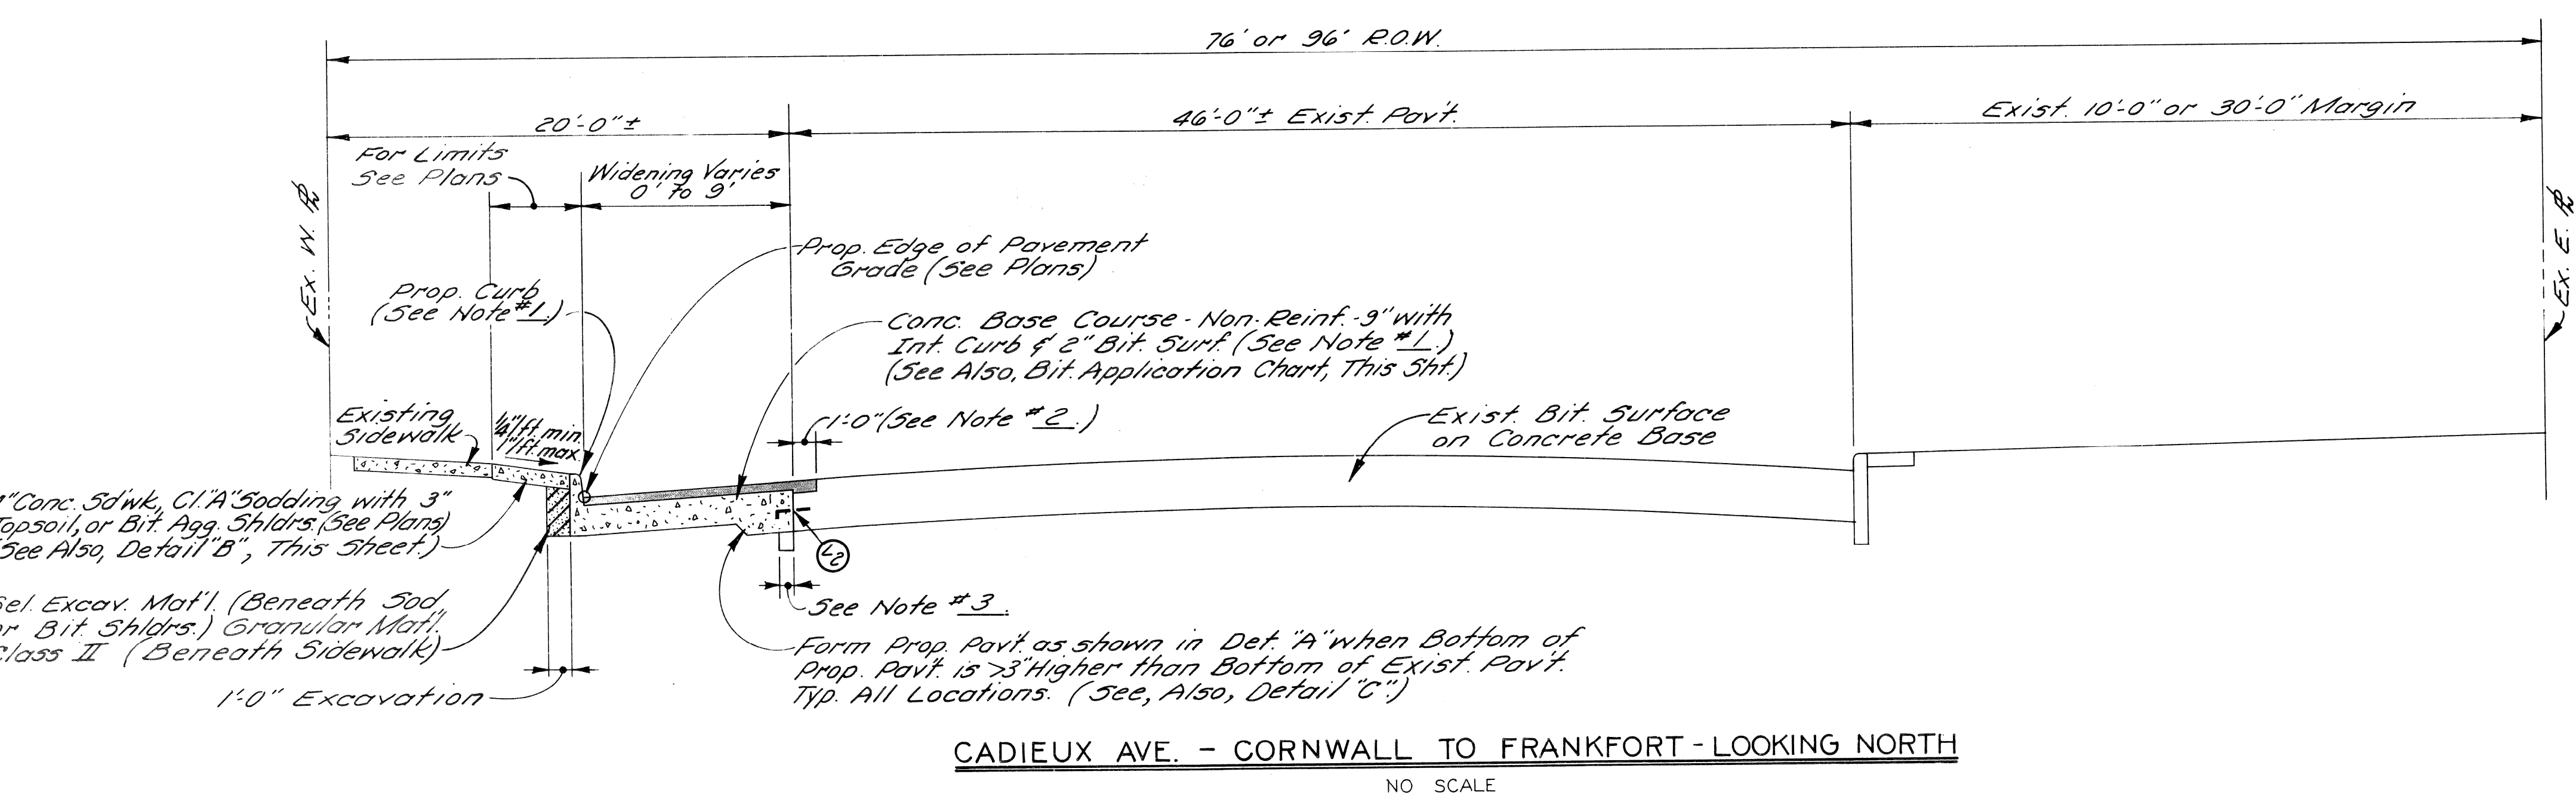 76' or 96' R.O.W.
20'-0"±
46'-0"± Exist. Pav't.
Exist. 10'-0" or 30'-0" Margin
For Limits
See Plans
Widening Varies
0' to 9'
Ex. W. PL
Ex. E. PL
Prop. Edge of Pavement
Grade (See Plans)
Prop. Curb
(See Note #1.)
Conc. Base Course - Non-Reinf. -9" with
Int. Curb & 2" Bit. Surf. (See Note #1.)
(See Also, Bit. Application Chart, This Sht.)
Existing
Sidewalk
1/4"/ft. min.
1"/ft. max.
1'-0" (See Note #2.)
Exist. Bit. Surface
on Concrete Base
"Conc. Sd'wk., Cl. "A" Sodding with 3"
Topsoil, or Bit. Agg. Shldrs. (See Plans)
See Also, Detail "B", This Sheet.)
L2
Sel. Excav. Mat'l. (Beneath Sod,
or Bit. Shldrs.) Granular Mat'l.
Class II (Beneath Sidewalk)
See Note #3.
Form Prop. Pav't. as shown in Det. "A" when Bottom of
Prop. Pav't. is >3" Higher than Bottom of Exist. Pav't.
Typ. All Locations. (See, Also, Detail "C".)
1'-0" Excavation
CADIEUX AVE. - CORNWALL TO FRANKFORT - LOOKING NORTH
NO SCALE